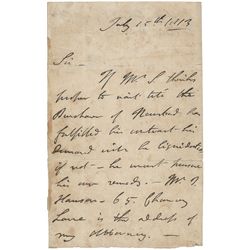 July 15th 1813
Sir -
If Mr. S. thinks
proper to wait till the
Purchaser of Newstead has
fulfilled his contract his
demand will be liquidated
if not - he must pursue
his own remedy. - Mr.
Hanson - 65 Chancery
Lane is the address of
my Attorney. -